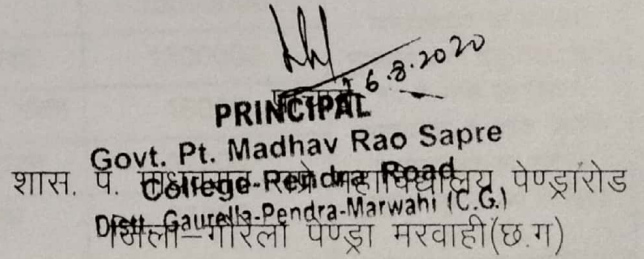 6.8.2020
प्राचार्य
PRINCIPAL
Govt. Pt. Madhav Rao Sapre
College-Pendra Road
Distt. Gaurella-Pendra-Marwahi (C.G.)
शास. पं. माधवराव सप्रे महाविद्यालय पेण्ड्रारोड
जिला–गौरेला पेण्ड्रा मरवाही(छ.ग)